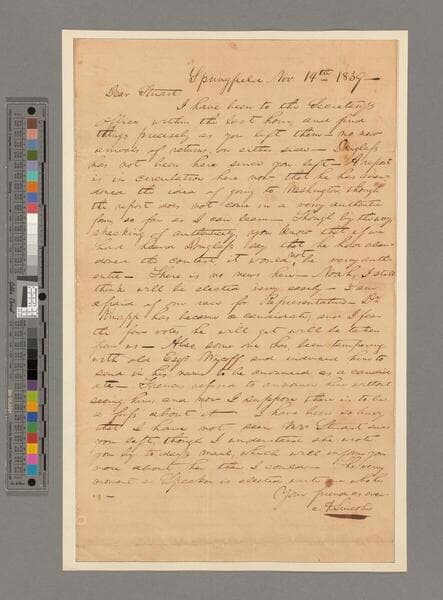 Springfield Nov. 14th 1839—
Dear Stuart
I have been to the Secretary's
office within the last hour, and find
things precisely as you left them— no new
arrivals of returns on either side— Douglass
has not been here since you left— A report
is in circulation here now that he has aban-
doned the idea of going to Washington, though
the report does not come in a very authentic
form so far as I can learn— Though by the way,
speaking of authenticity, you know that if we
had heard Douglass say that he had aban-
doned the contest it would not be very authen-
tic— There is no news here— Noah, I still
think will be elected very easily— I am
afraid of our race for Representative— Dr
Knapp has become a candidate; and I fear
the few votes he will get will be taken
from us— Also, some one has been tampering
with old Esqr Wyckoff and induced him to
send in his name to be announced as a candid-
ate— Francis refused to announce him without
seeing him, and now I suppose there is to be
a fuss about it— I have been so busy
that I have not seen Mrs Stuart since
you left, though I understand she wrote
you by to-days mail, which will inform you
more about her than I could— The very
moment a Speaker is elected write me who he
is—
Your friend as ever
A. Lincoln